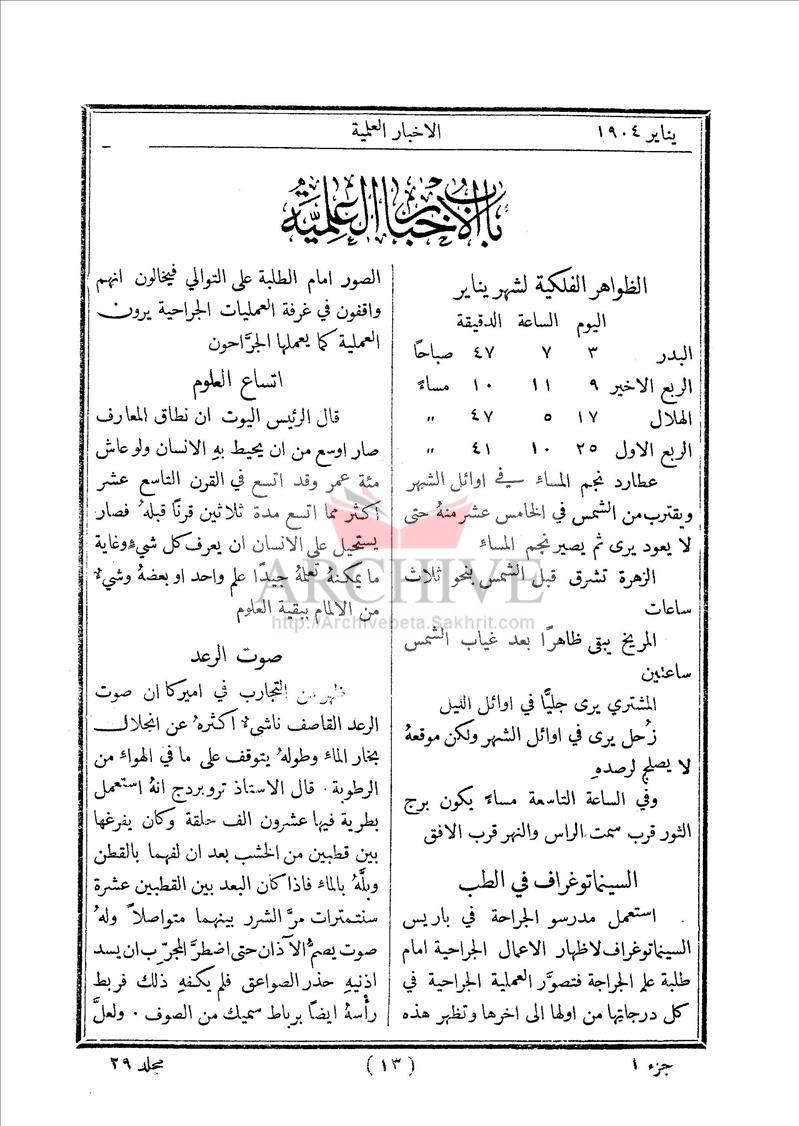 يناير ١٩٠٤
الاخبار العلمية
باب الاخبار العلمية
الظواهر الفلكية لشهر يناير
اليوم الساعة الدقيقة
البدر ٣ ٧ ٤٧ صباحًا
الربع الاخير ٩ ١١ ١٠ مساءً
الهلال ١٧ ٥ ٤٧ "
الربع الاول ٢٥ ١٠ ٤١ "
عطارد نجم المساء في اوائل الشهر
ويقترب من الشمس في الخامس عشر منهُ حتى
لا يعود يرى ثم يصير نجم المساء
الزهرة تشرق قبل الشمس بنحو ثلاث
ساعات
المريخ يبقى ظاهرًا بعد غياب الشمس
ساعتين
المشتري يرى جليًّا في اوائل الليل
زُحل يرى في اوائل الشهر ولكن موقعهُ
لا يصلح لرصدهِ
وفي الساعة التاسعة مساءً يكون برج
الثور قرب سمت الراس والنهر قرب الافق
السينماتوغراف في الطب
استعمل مدرسو الجراحة في باريس
السينماتوغراف لاظهار الاعمال الجراحية امام
طلبة علم الجراحة فتصوَّر العملية الجراحية في
كل درجاتها من اولها الى اخرها وتظهر هذه
الصور امام الطلبة على التوالي فيخالون انهم
واقفون في غرفة العمليات الجراحية يرون
العملية كما يعملها الجرَّاحون
اتساع العلوم
قال الرئيس اليوت ان نطاق المعارف
صار اوسع من ان يحيط بهِ الانسان ولو عاش
مئة عمر وقد اتسع في القرن التاسع عشر
اكثر مما اتسع مدة ثلاثين قرنًا قبلهُ فصار
يستحيل على الانسان ان يعرف كل شيءٍ وغاية
ما يمكنهُ تعلمهُ جيدًا علم واحد او بعضهُ وشيءٌ
من الالمام ببقية العلوم
صوت الرعد
ظهر من التجارب في اميركا ان صوت
الرعد القاصف ناشئٌ اكثرهُ عن انحلال
بخار الماء وطولهُ يتوقف على ما في الهواء من
الرطوبة. قال الاستاذ تروبردج انهُ استعمل
بطرية فيها عشرون الف حلقة وكان يفرغها
بين قطبين من الخشب بعد ان لفهما بالقطن
وبلَّهُ بالماء فاذا كان البعد بين القطبين عشرة
سنتمترات مرَّ الشرر بينهما متواصلاً ولهُ
صوت يصمُّ الآذان حتى اضطرَّ المجرِّب ان يسد
اذنيهِ حذر الصواعق فلم يكفهِ ذلك فربط
رأسهُ ايضًا برباط سميك من الصوف. ولعلَّ
ARCHIVE
http://Archivebeta.Sakhrit.com
جزء ١
(١٣)
مجلد ٢٩